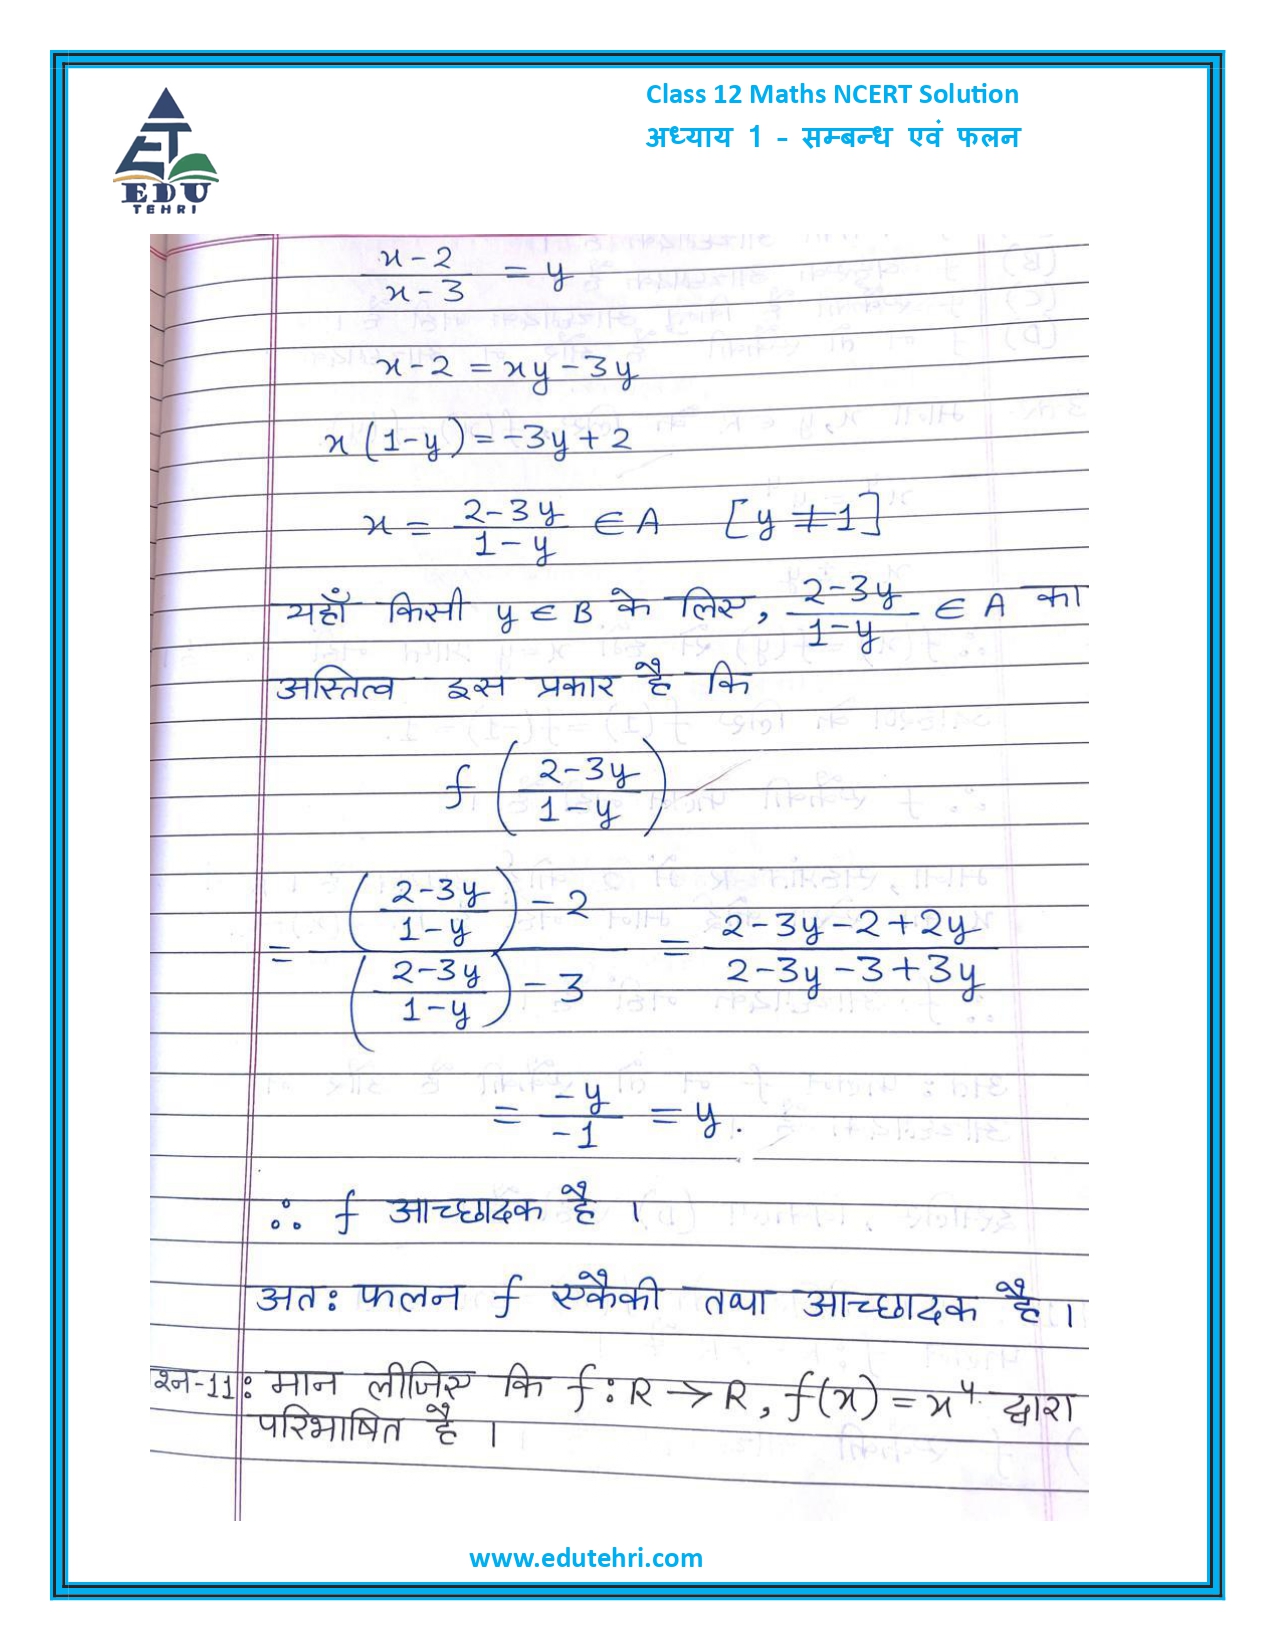 Class 12 Maths NCERT Solution
अध्याय 1 - सम्बन्ध एवं फलन
ET
EDU
TEHRI
x-2/x-3 = y
x-2 = xy-3y
x(1-y) = -3y+2
x = 2-3y/1-y ∈ A [y ≠ 1]
यहाँ किसी y ∈ B के लिए, 2-3y/1-y ∈ A का
अस्तित्व इस प्रकार है कि
f(2-3y/1-y)
= (2-3y/1-y)-2/(2-3y/1-y)-3 = 2-3y-2+2y/2-3y-3+3y
= -y/-1 = y.
∴ f आच्छादक है ।
अतः फलन f एकैकी तथा आच्छादक है ।
श्न-11: मान लीजिए कि f: R → R, f(x) = x⁴ द्वारा
परिभाषित है ।
www.edutehri.com